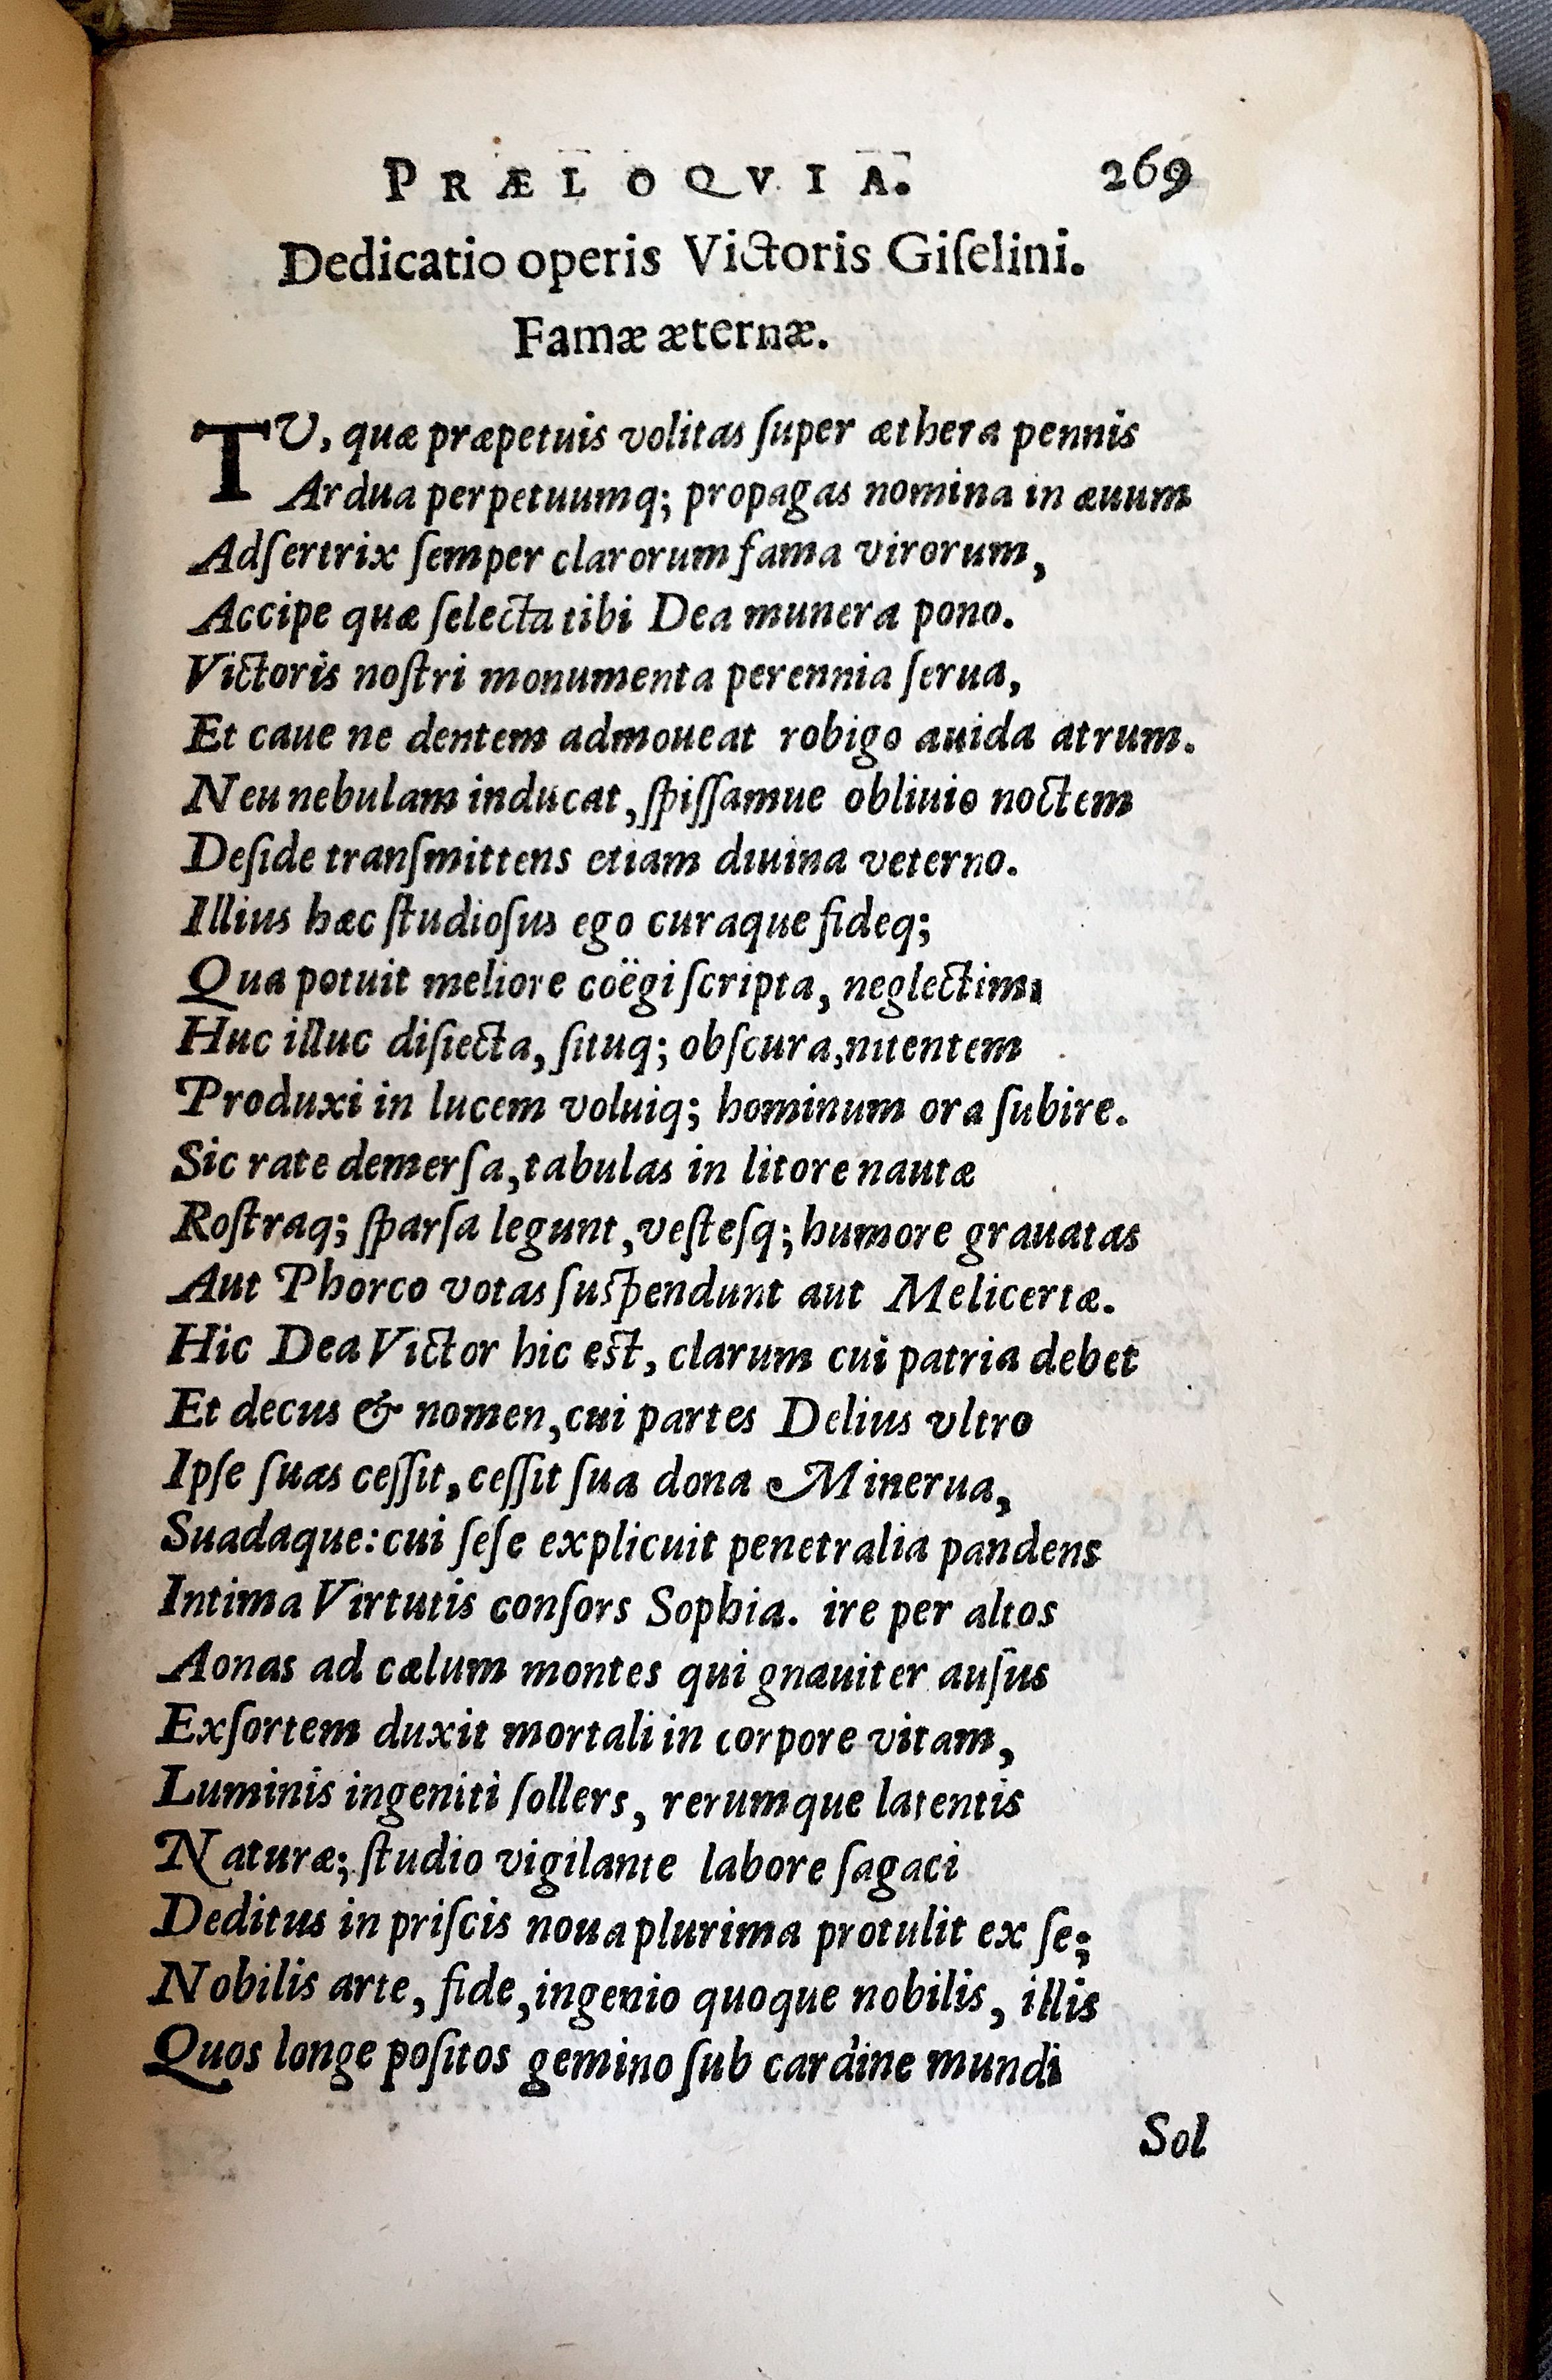 PRÆLOQVIA. 269
Dedicatio operis Victoris Giſelini.
Famæ æternæ.
TU, quæ præpetuis volitas ſuper æthera pennis
Ardua perpetuumq; propagas nomina in æuum
Adſertrix ſemper clarorum fama virorum,
Accipe quæ ſelecta tibi Dea munera pono.
Victoris noſtri monumenta perennia ſerua,
Et caue ne dentem admoueat robigo auida atrum.
Neu nebulam inducat, ſpiſſamue obliuio noctem
Deſide tranſmittens etiam diuina veterno.
Illius hæc ſtudioſus ego curaque fideq;
Qua potuit meliore coëgi ſcripta, neglectim,
Huc illuc diſiecta, ſituq; obſcura, nitentem
Produxi in lucem voluiq; hominum ora ſubire.
Sic rate demerſa, tabulas in litore nautæ
Roſtraq; ſparſa legunt, veſteſq; humore grauatas
Aut Phorco votas ſuſpendunt aut Melicertæ.
Hic Dea Victor hic eſt, clarum cui patria debet
Et decus & nomen, cui partes Delius vltro
Ipſe ſuas ceſſit, ceſſit ſua dona Minerua,
Suadaque: cui ſeſe explicuit penetralia pandens
Intima Virtutis conſors Sophia. ire per altos
Aonas ad cælum montes qui gnauiter auſus
Exſortem duxit mortali in corpore vitam,
Luminis ingeniti ſollers, rerumque latentis
Naturæ; ſtudio vigilante labore ſagaci
Deditus in priſcis noua plurima protulit ex ſe;
Nobilis arte, fide, ingenio quoque nobilis, illis
Quos longe poſitos gemino ſub cardine mundi
Sol